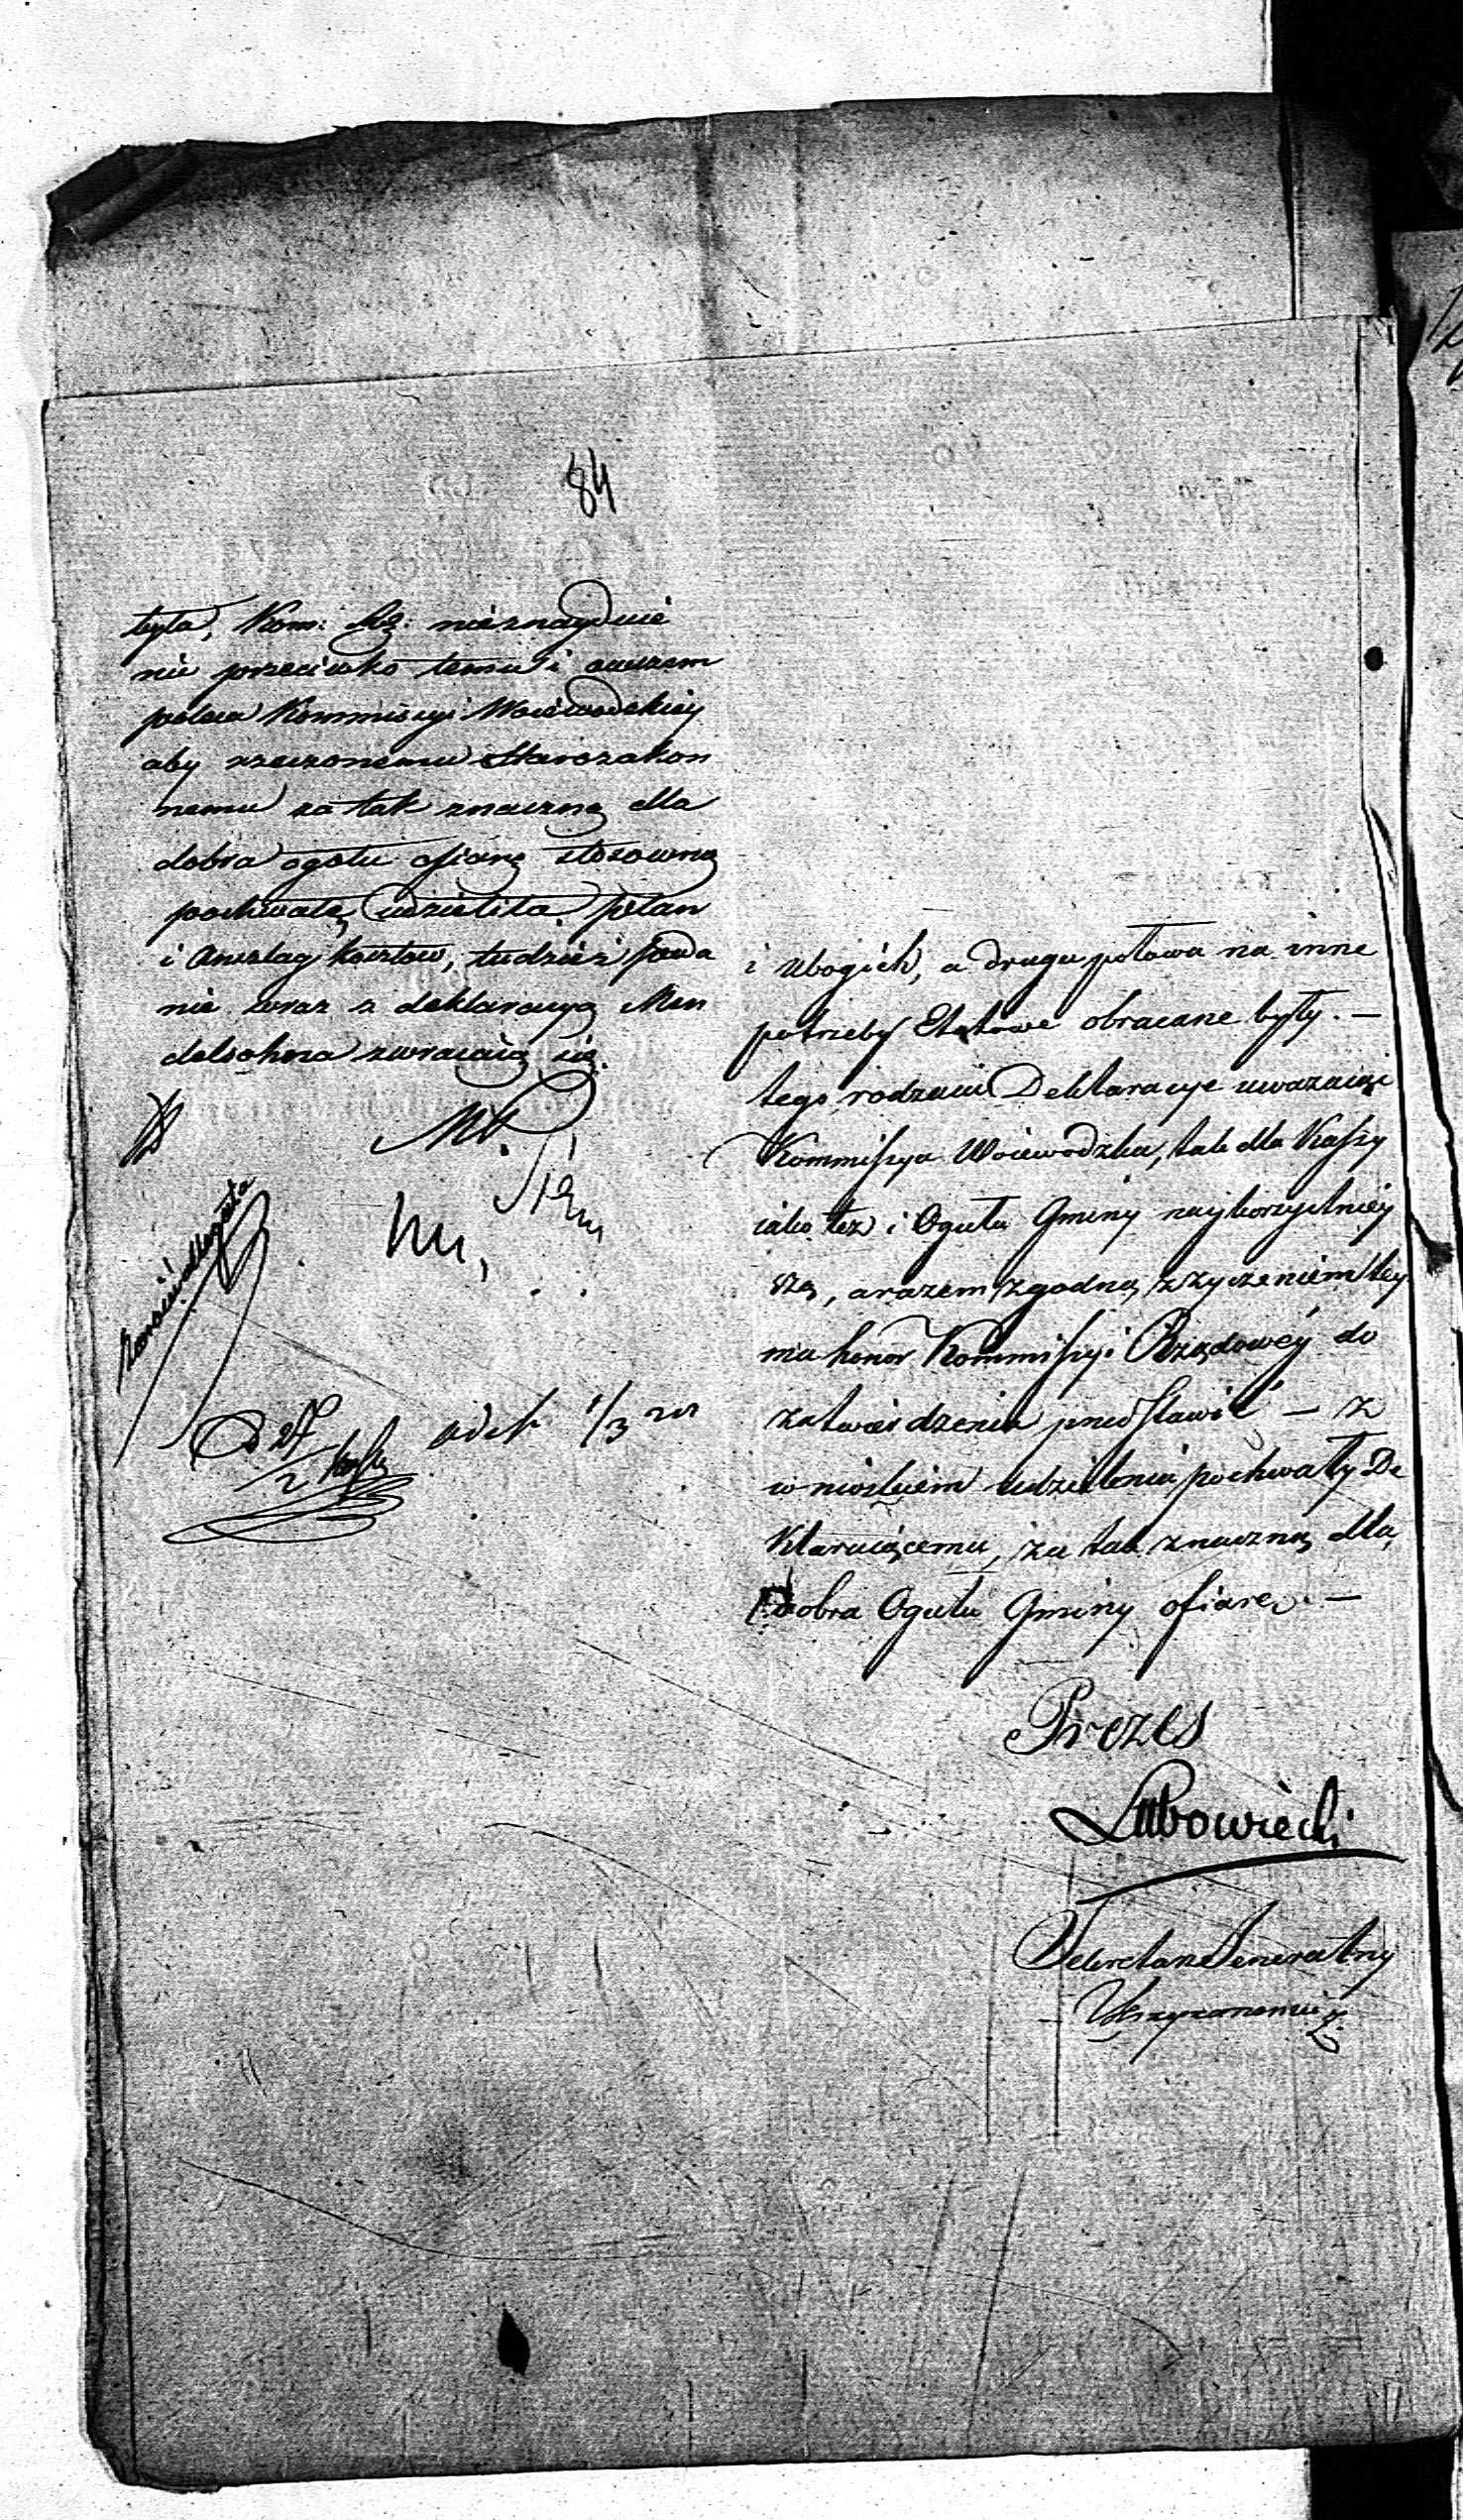 84
tyła, Kom: Rz: nieznayduie
nic przeciwko temu i owszem
poleca Kommissyi Woiewodzkiey
aby rzeczonemu Starozakon
nemu za tak znaczną dla
dobra ogółu ofiarę stosowną
pochwałę udzieliła. Plan
i Anszlag kosztow, tudzież poda
nie wraz z deklaracyą Men
delsohna zwracaią się.
i Ubogich, a druga połowa na inne
potrzeby Etatowe obracane były. —
tego rodzaiu Deklaracye uważaiąc
Kommissya Woiewodzka, tak dla Kassy
iako też i Ogułu Gminy naykorzystniey
szą, a razem zgodną z życzeniem tey
ma honor Kommissyi Rządowéy do
zatwierdzenia przedstawić — z
wnioskiem udzielenia pochwały De
klaruiącemu, za tak znaczną dla
Dobra Ogułu Gminy ofiarę. —
Prezes
Lubowiecki
Sekretarz Generalny